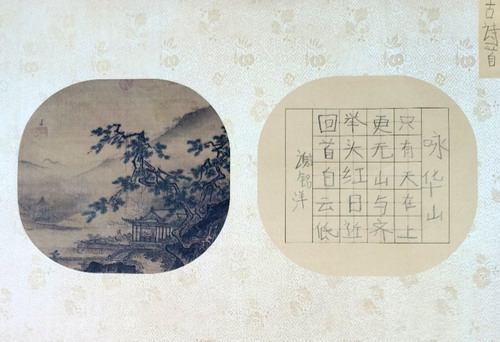 古诗首
咏华山
只有天在上
更无山与齐
举头红日近
回首白云低
谢铭洋